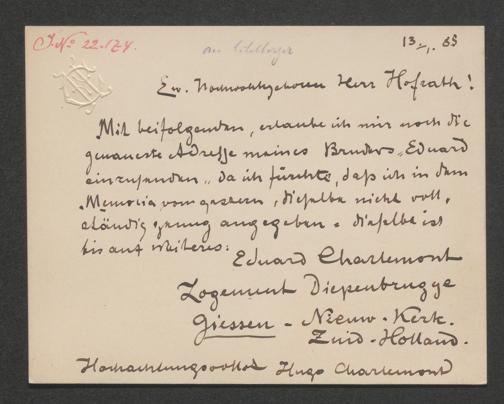 J. No 22.174.
13/I. 85
Ew. Hochwohlgeboren Herr Hofrath!
Mit beifolgenden, erlaube ich mir noch die
genaueste Adresse meines Bruders „Eduard
einzusenden„ da ich fürchte, daß ich in dem
„Memoria vom gestern, dieselbe nicht voll„
ständig genug angegeben = dieselbe ist
bis auf Weiteres:
Eduard Charlemont
Logement Diepenbrugge
Giessen - Nieuw-Kerk.
Zuid-Holland.
Hochachtungsvollst Hugo Charlemont